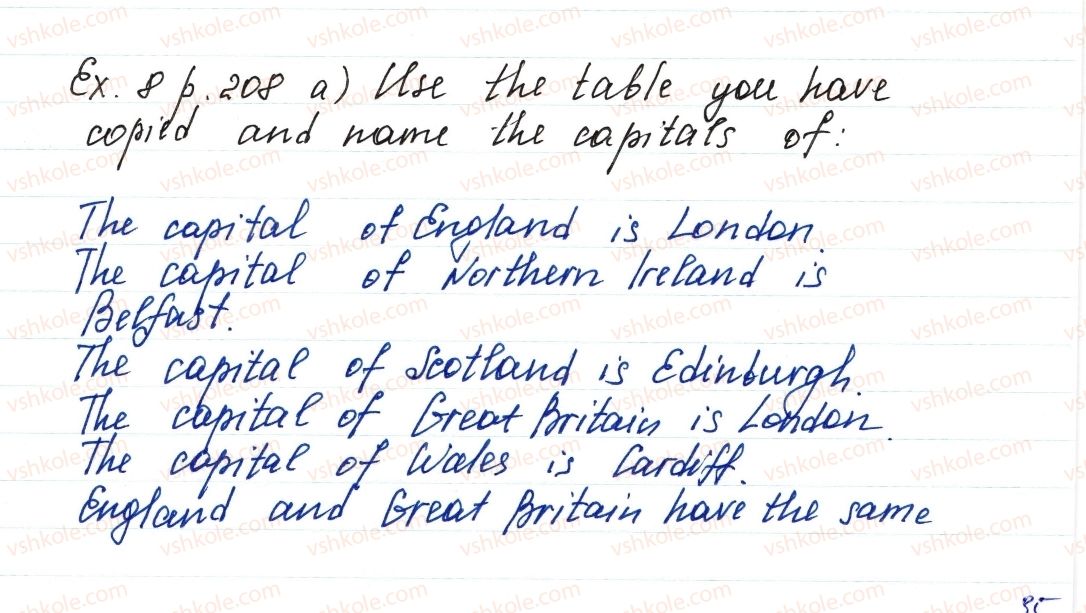 Ex. 8 p. 208 a) Use the table you have
copied and name the capitals of:
The capital of England is London.
The capital of Northern Ireland is
Belfast.
The capital of Scotland is Edinburgh.
The capital of Great Britain is London.
The capital of Wales is Cardiff.
England and Great Britain have the same